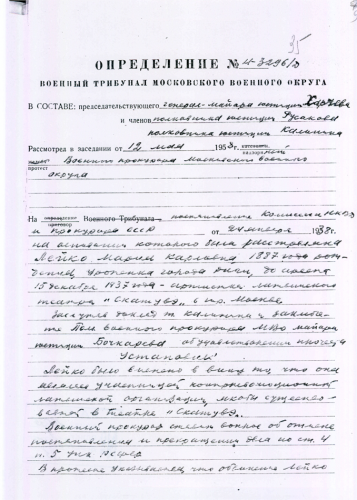 35
ОПРЕДЕЛЕНИЕ № Н-3296/0
ВОЕННЫЙ ТРИБУНАЛ МОСКОВСКОГО ВОЕННОГО ОКРУГА
В СОСТАВЕ: председательствующего генерал-майора юстиции Харчева
и членов полковника юстиции Рыбакова
полковника юстиции Калинина
Рассмотрел в заседании от 12 мая
протест Военного прокурора Московского военного
округа
На Военного Трибунала постановление Комиссии НКВД
и прокурора СССР от 1938г.
на основании которого была расстреляна
Лейко Мария Карловна 1887 года
уроженка города Риги, до ареста
15 декабря 1937 года – артистка латышского
театра "Скатувэ" в гор. Москве
Заслушав доклад т. Калинина и
Пом военного прокурора МВО майора
юстиции Бочкарева об удовлетворении протеста
Установил:
Лейко было вменено в вину то, что она
являлась участницей контрреволюционной
латышской организации, якобы существо-
вавшей в театре "Скатувэ".
Военный прокурор ставит вопрос об отмене
постановления и прекращении дела по ст. 4
п. 5 УПК РСФСР
В протесте указывается, что обвинение Лейко